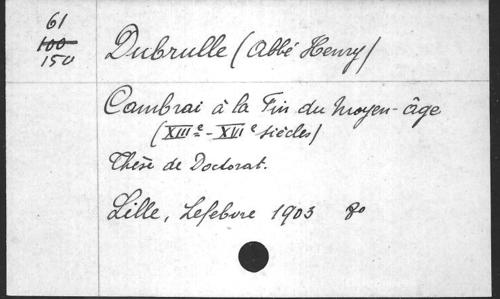 61
100
150
Dubrulle (Abbé Henry)
Cambrai à la Fin du Moyen-âge
(XIIIe - XVIe siècles)
Thèse de Doctorat.
Lille, Lefebvre 1903 8o